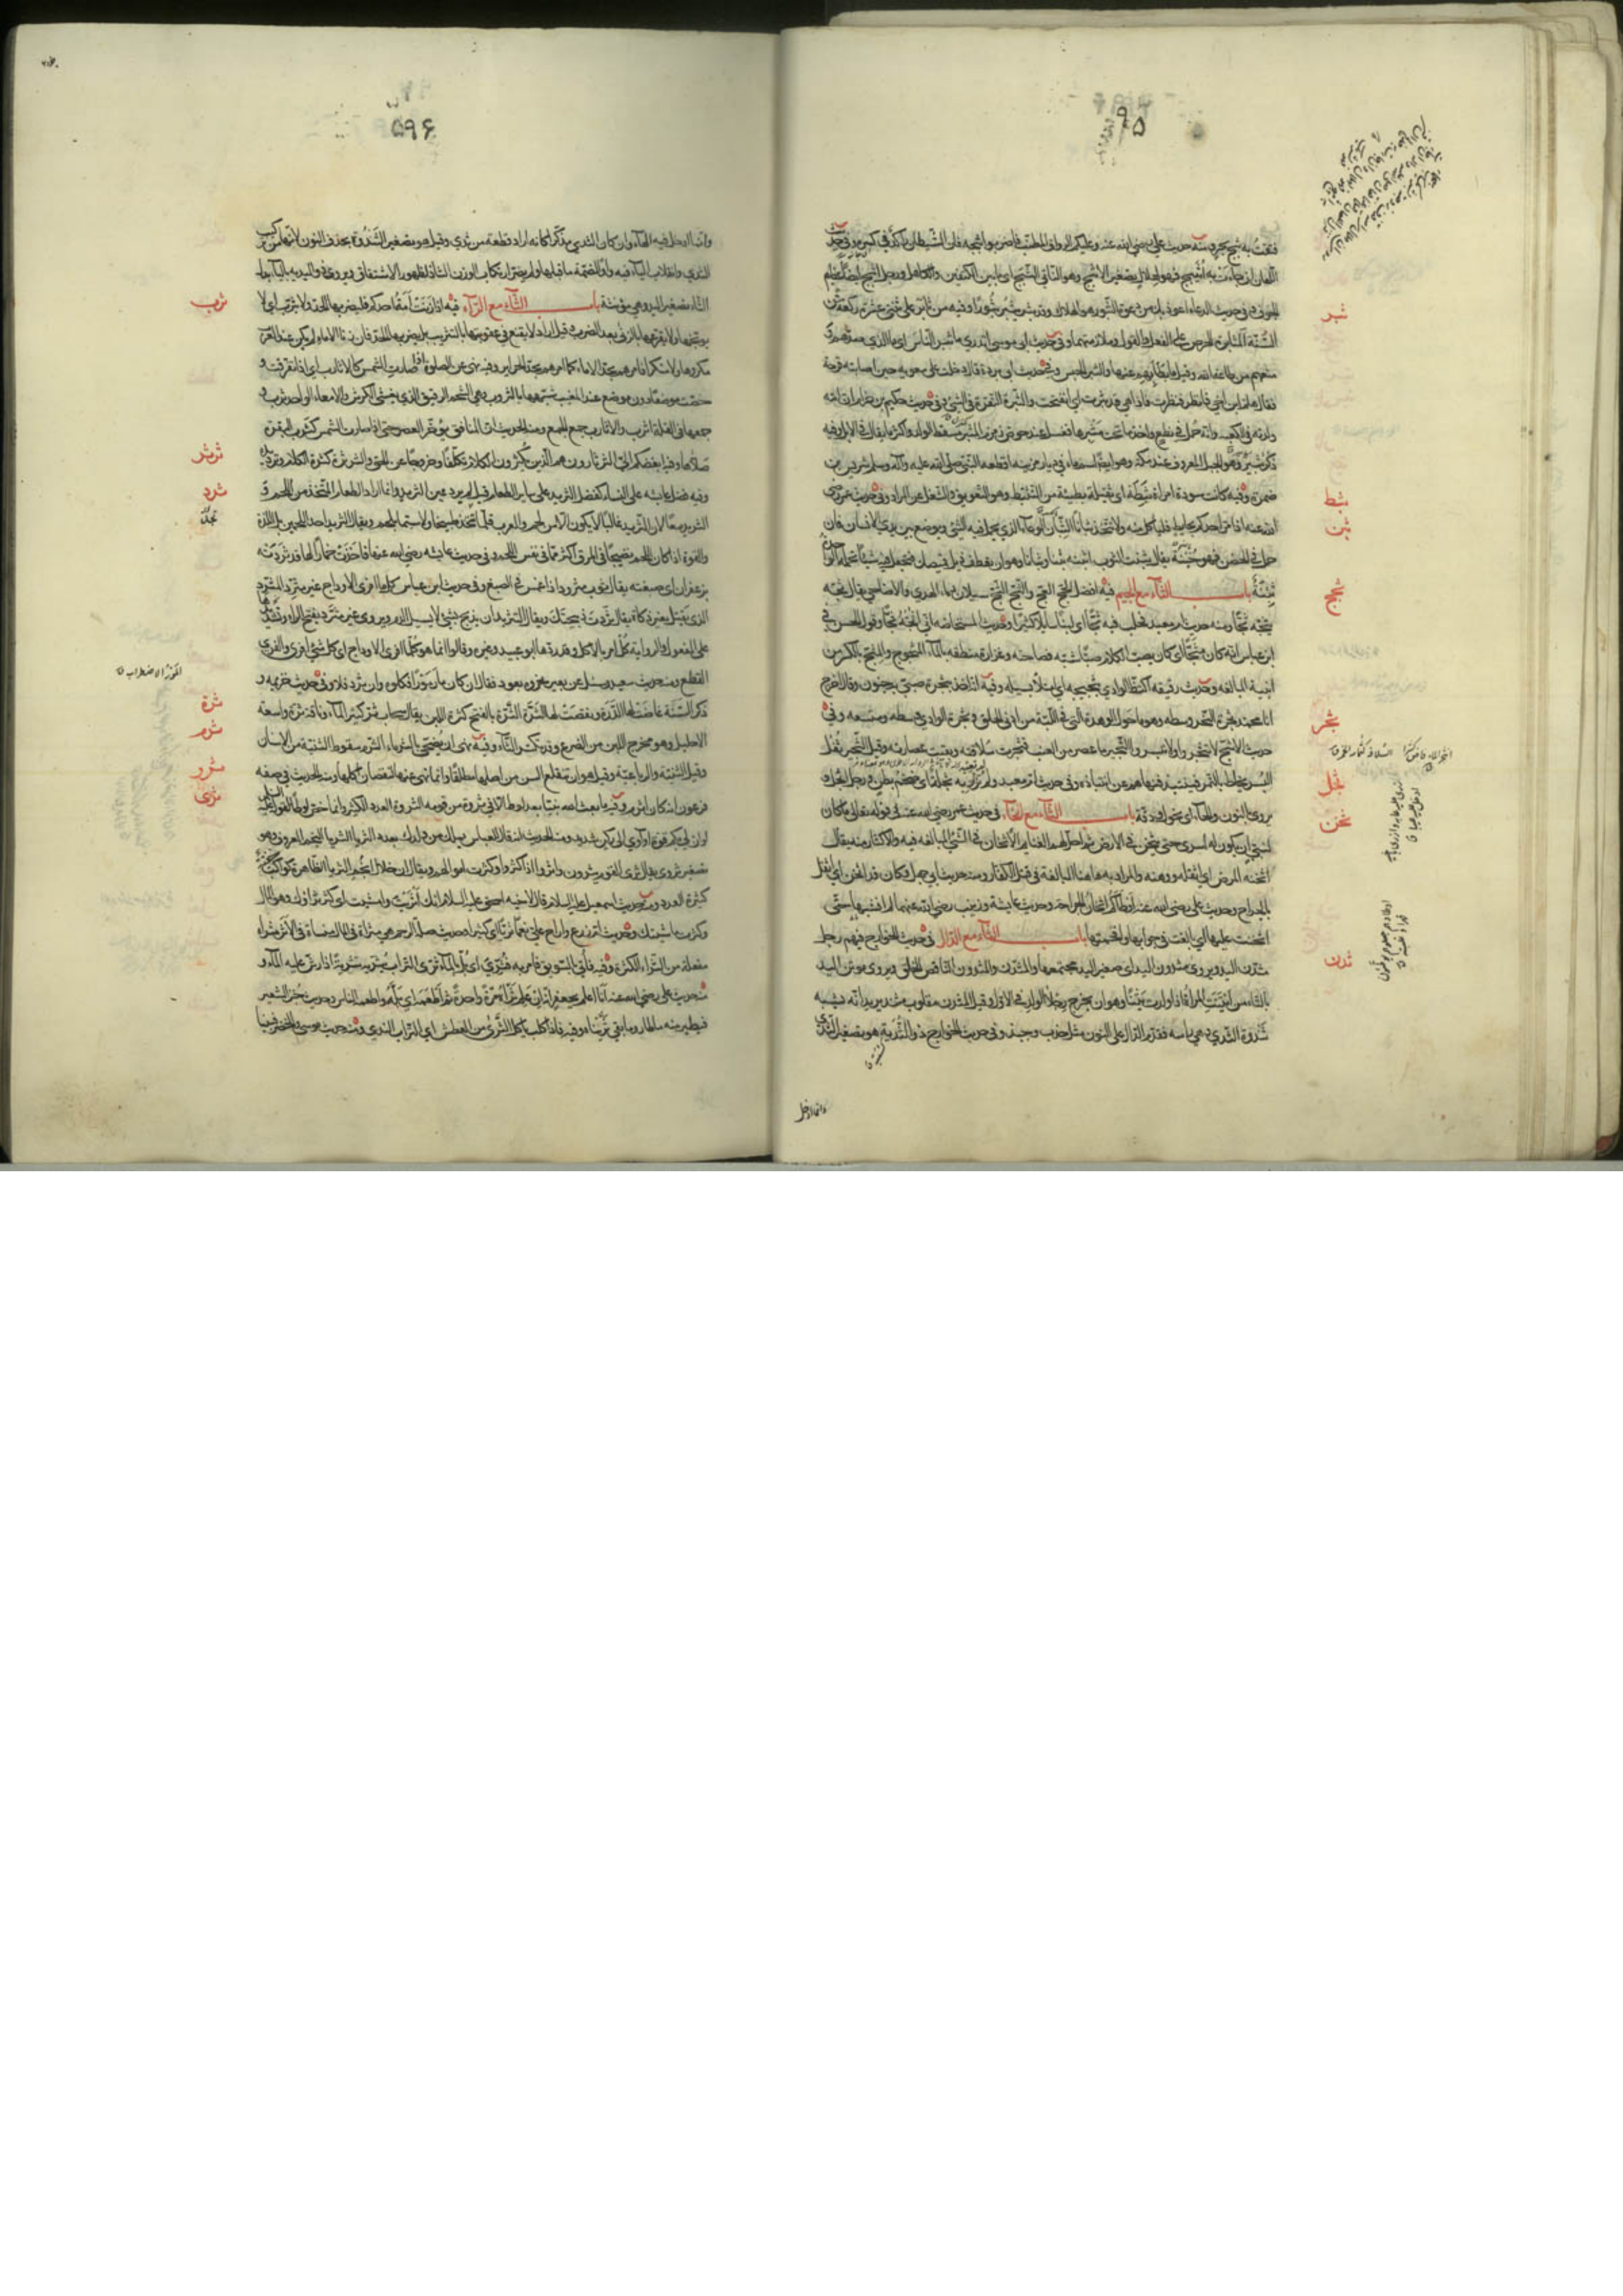 ۵۹۵
ثبر
ثبط
ثبن
ثجج
ثجر
ثجل
ثخن
ثدن
منه حديث علي رضي الله عنه وعليكم الرواق المطنب فاضربوا ثبجه فان الشيطان راكد في كسره وفي حديث
اللعان ان جاءت به أثيبج فهو لهلال تصغير الاثبج وهو الناتي الثبج اي ما بين الكتفين والكاهل ورجل اثبج ايضا عظيم
الجوف في حديث الدعاء اعوذ بك من دعوة الثبور هو الهلاك وقد ثبر يثبر ثبورا وفيه من ثابر على ثنتي عشرة ركعة من
السنة المثابرة الحرص على الفعل والقول وملازمتهما وفي حديث ابي موسى اتدري ما ثبر الناس اي ما الذي صدهم و
منعهم من طاعة الله وقيل ما بطأ بهم عنها والثبر الحبس وفي حديث ابي بردة قال دخلت على معوية حين اصابته قرحة
فقال هلم يا ابن اخي فانظر فنظرت فاذا هي قد ثبرت اي انفتحت والثبرة النقرة في الشيء وفي حديث حكيم بن حزام ان امه
ولدته في الكعبة وانه حمل في نطع واخذ ما تحت مثبرها فغسل عند حوض زمزم المثبر مسقط الولد واكثر ما يقال في الابل وفيه
ذكر ثبير وهو الجبل المعروف عند مكة وهو ايضا اسم ماء في ديار مزينة اقطعه النبي صلى الله عليه وآله وسلم شريس بن
ضمرة وفيه كانت سودة امرأة ثبطة اي ثقيلة بطيئة من التثبيط وهو التعويق والشغل عن المراد وفي حديث عمر رضي
الله عنه اذا مر احدكم بحايط فليأكل منه ولا يتخذ ثبانا الثبان الوعاء الذي يحمل فيه الشيء ويوضع بين يدي الانسان فان
حمل في الحضن فهو خبنة يقال ثبنت الثوب اثبنه ثبنا وثبانا وهو ان يعطف ذيل قميصك فتجعل فيه شيئا تحمله الواحدة
ثبنة باب الثاء مع الجيم فيه افضل الحج العج والثج الثج سيلان دماء الهدي والاضاحي يقال ثجه
يثجه ثجا ومنه حديث ام معبد فحلب فيه ثجا اي لبنا سايلا كثيرا وحديث المستحاضة اني اثجه ثجا وقول الحسن في
ابن عباس انه كان مثجا اي كان يصب الكلام صبا شبه فصاحته وغزارة منطقه بالماء المثجوج والمثج بالكسر من
ابنية المبالغة وحديث رقيقة اكتظ الوادي بثجيجه اي امتلأ بسيله وفيه انه اخذ بثجرة صبي به جنون وقال اخرج
انا محمد ثجرة النحر وسطه وهو ما حول الوهدة التي في اللبة من ادنى الحلق وثجرة الوادي وسطه ومتسعه وفي
حديث الاشج لا تثجروا ولا تبسروا الثجير ما عصر من العنب فجرت سلافته وبقيت عصارته وقيل الثجير ثفل
البسر يخلط بالتمر فينتبذ فنهاهم عن انتباذه وفي حديث ام معبد ولم تزر به ثجلة اي ضخم بطن ورجل اثجل و
يروى بالنون والحاء اي نحول ودقة باب الثاء مع الخاء في حديث عمر رضي الله عنه في قوله تعالى ما كان
لنبي ان يكون له اسرى حتى يثخن في الارض ثم احل لهم الغنايم الاثخان في الشيء المبالغة فيه والاكثار منه يقال
اثخنه المرض اي اثقله ووهنه والمراد به هاهنا المبالغة في قتل الكفار ومنه حديث ابي جهل وكان قد اثخن اي اثقل
بالجراح وحديث علي رضي الله عنه اوطأكم اثخان الجراحة وحديث عايشة وزينب رضي الله عنهما لم انشبها حتى
اثخنت عليها اي بالغت في جوابها وافحمتها باب الثاء مع الدال في حديث الخوارج فيهم رجل
مثدن اليد ويروى مثدون اليد اي صغير اليد مجتمعها والمثدن والمثدون الناقص الخلق ويروى موتن اليد
بالتاء من ايتنت المرأة اذا ولدت يتنا وهو ان يخرج رجلا الولد في الاول وقيل المثدن مقلوب مثند يريد انه يشبه
ثندوة الثدي وهي رأسه فقدم الدال على النون مثل جذب وجبذ وفي حديث الخوارج ذو الثدية هو تصغير الثدي
وانما ادخل
۵۹۶
ثرب
ثرثر
ثرد
ثرة
ثرم
ثرر
ثرى
المور الاضطراب
وانما ادخل فيه الهاء وان كان الثدي مذكرا كانه اراد قطعة من ثدي وقيل هو تصغير الثندوة بحذف النون لانها من تركيب
الثدي وانقلاب الياء فيه واوا لضمة ما قبلها ولم يضر ارتكاب الوزن الشاذ لظهور الاشتقاق ويروى ذو اليدية بالياء بدل
الثاء تصغير اليد وهي مؤنثة باب الثاء مع الراء فيه اذا زنت امة احدكم فليضربها الحد ولا يثرب اي لا
يوبخها ولا يقرعها بالزنى بعد الضرب وقيل اراد لا يقنع في عقوبتها بالتثريب بل يضربها الحد فان زنا الاماء لم يكن عند العرب
مكروها ولا منكرا فامرهم بحد الاماء كما امرهم بحد الحراير وفيه نهى عن الصلوة اذا صارت الشمس كالاثارب اي اذا تفرقت و
خصت موضعا دون موضع عند المغيب شبهها بالثروب وهي الشحم الرقيق الذي يغشي الكرش والامعاء الواحد ثرب و
جمعها في القلة اثرب والاثارب جمع الجمع ومنه الحديث ان المنافق يؤخر العصر حتى اذا صارت الشمس كثرب البقرة
صلاها وفيه ابغضكم الي الثرثارون هم الذين يكثرون الكلام تكلفا وخروجا عن الحق والثرثرة كثرة الكلام وترديده
وفيه فضل عايشة على النساء كفضل الثريد على ساير الطعام قيل لم يرد عين الثريد وانما اراد الطعام المتخذ من اللحم و
الثريد معا لان الثريد غالبا لا يكون الا من لحم والعرب قلما تتخذ طبيخا ولا سيما بلحم ويقال الثريد احد اللحمين بل اللذة
والقوة اذا كان اللحم نضيجا في المرق اكثر مما في نفس اللحم وفي حديث عايشة رضي الله عنها فاخذت خمارا لها قد ثردته
بزعفران اي صبغته يقال ثوب مثرود اذا غمس في الصبغ وفي حديث ابن عباس كل ما افرى الاوداج غير مثرد المثرد
الذي يقتل بغير ذكاة يقال ثردت ذبيحتك ويقال التثريد ان يذبح بشيء لا يسيل الدم ويروى غير مثرد بفتح الراء
على المفعول والرواية كل امر بالاكل وقد ردها ابو عبيد وغيره وقالوا انما هو كل ما افرى الاوداج اي كل شيء افرى والفري
القطع ومنه حديث سعيد وسئل عن بعير نحروه بعود فقال ان كان مار مورا فكلوه وان ثرد فلا وفي حديث خزيمة و
ذكر السنة غاضت لها الدرة ونقصت لها الثرة الثرة بالفتح كثرة اللبن يقال سحاب ثر كثير الماء وناقة ثرة واسعة
الاحليل وهو مخرج اللبن من الضرع وقد تكسر الثاء وفيه نهى ان يضحى بالثرماء الثرم سقوط الثنية من الاسنان
وقيل الثنية والرباعية وقيل هو ان تنقلع السن من اصلها مطلقا وانما نهى عنها لنقصان اكلها ومنه الحديث في صفة
فرعون انه كان اثرم وفيه ما بعث الله نبيا بعد لوط الا في ثروة من قومه الثروة العدد الكثير وانما خص لوطا لقوله تعالى
لو ان لي بكم قوة او آوي الى ركن شديد ومنه الحديث انه قال للعباس يملك من ولدك بعدد الثريا الثريا النجم المعروف وهو
تصغير ثروى يقال ثرى القوم يثرون واثروا اذا كثروا وكثرت اموالهم ويقال ان خلال انجم الثريا الظاهرة كواكب خفية
كثيرة العدد ومنه حديث اسمعيل عليه السلام قال لاخيه اسحق عليه السلام انك اثريت وامشيت اي كثر ثراؤك وهو المال
وكثرت ماشيتك وحديث ام زرع واراح علي نعما ثريا اي كثيرا وحديث صلة الرحم هي مثراة في المال منسأة في الاثر مثراة
مفعلة من الثراء الكثرة وفيه فأتي بالسويق فامر به فثري اي بل بالماء ثرى التراب يثريه تثرية اذا رش عليه الماء و
منه حديث علي رضي الله عنه انا اعلم بجعفر انه ان علم ثراه مرة واحدة ثم اطعمه اي بله واطعمه الناس وحديث خبز الشعير
فيطير منه ما طار وما بقي ثريناه وفيه فاذا كلب يأكل الثرى من العطش اي التراب الندي ومنه حديث موسى والخضر فبينا